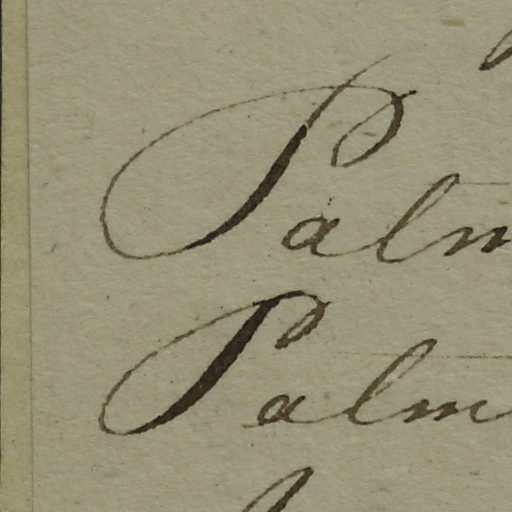 Palm
Palm